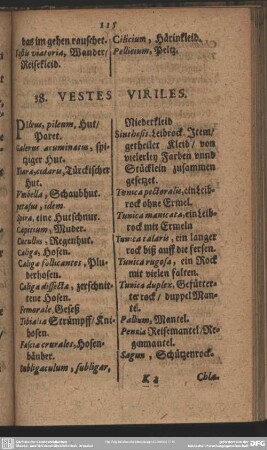 115
das im gehen rauschet.
Vestis viatoria, Wander/
Reisekleid.
Cilicium, Härinkleid.
Pellicium, Peltz.
38. VESTES VIRILES.
Pileus, pileum, Hut/
Paret.
Galerus acuminatus, spi-
tziger Hut.
Tiara, cidaris, Türckischer
Hut.
Umbella, Schaubhut.
Petasus, idem.
Spira, eine Hutschnur.
Capitium, Muder.
Cucullus, Regenhut.
Caliga, Hosen.
Caliga follicantes, Plu-
derhosen.
Caliga dissecta, zerschnit-
tene Hosen.
Femorale, Geseß
Tibialia Strümpff/Kni-
hosen.
Fascia crurales, Hosen-
bänder.
Subligaculum, subligar,
Niederkleid
Synthesis, Leibrock. Item/
getheilet Kleid/ von
vielerley Farben vnnd
Stücklein zusammen
gesetzet.
Tunica pectoralis, ein Leib-
rock ohne Ermel.
Tunica manicata, ein Leib-
rock mit Ermeln
Tunica talaris, ein langer
rock biß auff die fersen.
Tunica rugosa, ein Rock
mit vielen falten.
Tunica duplex, Gefütter-
ter rock/ duppel Man-
tel.
Pallium, Mantel.
Penula Reisemantel/Re-
genmantel.
Sagum, Schützenrock.
K 2
Chla.